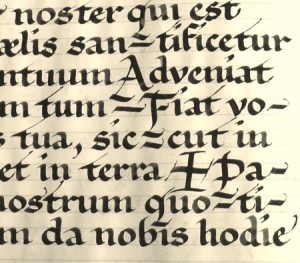 noster qui est
ælis san=tificetur
ntuum Adveniat
m tum=Fiat vo-
s tua, sic=cut in
et in terra ‡ Pa-
nostrum quo=ti-
m da nobis hodie